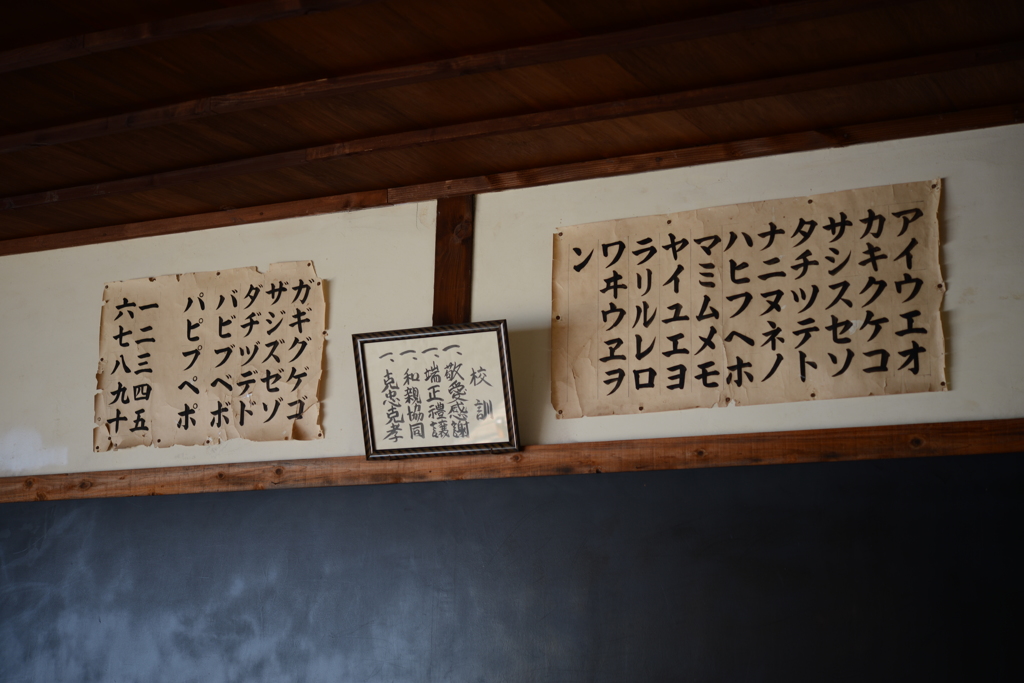 アイウエオ
カキクケコ
サシスセソ
タチツテト
ナニヌネノ
ハヒフヘホ
マミムメモ
ヤイユエヨ
ラリルレロ
ワヰウヱヲ
ン
校訓
一、敬愛感謝
一、端正禮譲
一、和親協同
一、克忠克孝
ガギグゲゴ
ザジズゼゾ
ダヂヅデド
バビブベボ
パピプペポ
一二三四五
六七八九十